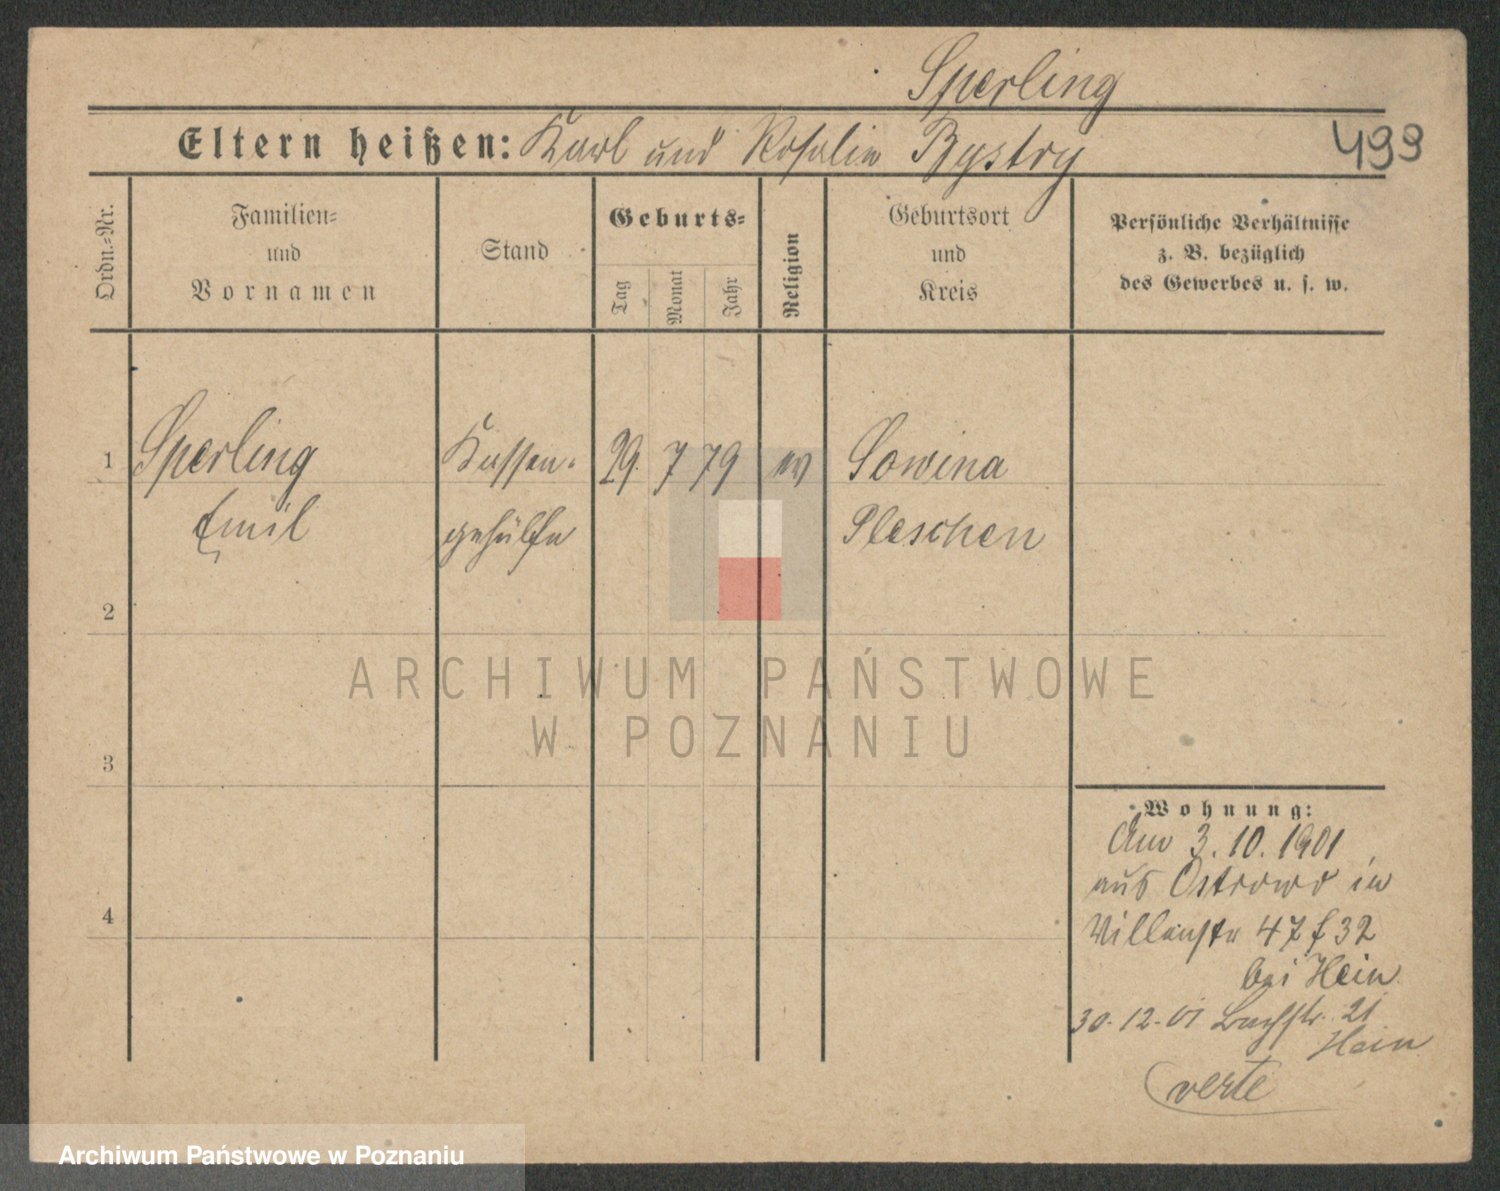 Sperling
Eltern heißen: Karl und Rosalie Bystry
499
Ordn.=Nr.
Familien=
und
Vornamen
Stand
Geburts=
Tag
Monat
Jahr
Religion
Geburtsort
und
Kreis
Persönliche Verhältnisse
z. B. bezüglich
des Gewerbes u. s. w.
1 Sperling Kassen- 29. 7 79 ev Sowina
Emil gehülfe Pleschen
2
3
4
ARCHIWUM PAŃSTWOWE
W POZNANIU
Wohnung:
Am 3.10.1901
aus Ostrowo in
Villenstr 47 f 32
bei Hein
30.12.01 Bachstr. 21
Hein
verte
Archiwum Państwowe w Poznaniu